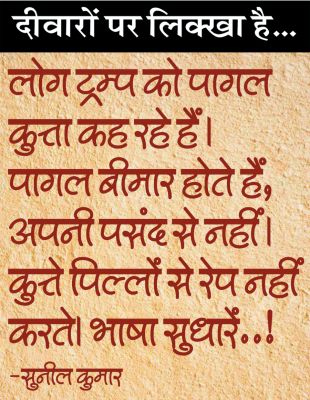 दीवारों पर लिक्खा है...
लोग ट्रम्प को पागल
कुत्ता कह रहे हैं।
पागल बीमार होते हैं,
अपनी पसंद से नहीं।
कुत्ते पिल्लों से रेप नहीं
करते। भाषा सुधारें..!
-सुनील कुमार